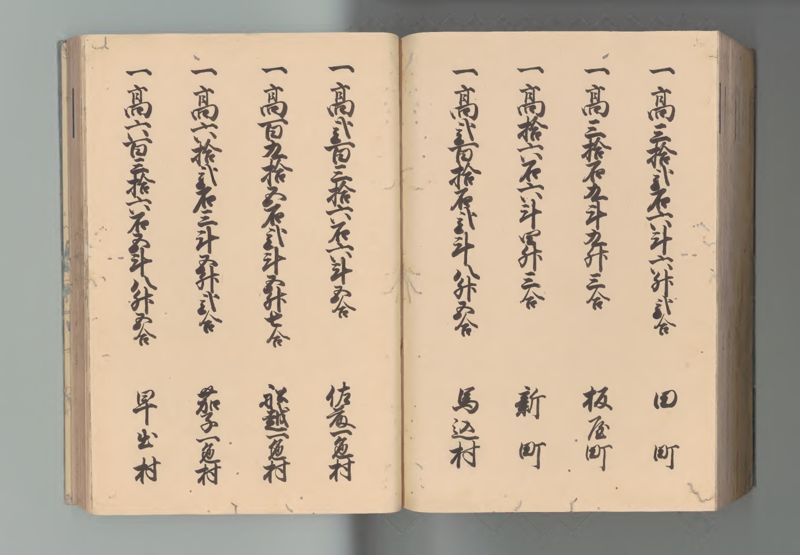 一高三拾弐石六斗六升弐合 田町
一高三拾石九斗九升三合 板屋町
一高拾六石六斗四升三合 新町
一高弐百拾石弐斗八升五合 馬込村
一高弐百三拾六石六斗五合 佐藤一色村
一高百九拾五石弐斗五升七合 船越一色村
一高六拾弐石三斗五升弐合 茄子一色村
一高六百三拾六石五斗八升五合 早出村